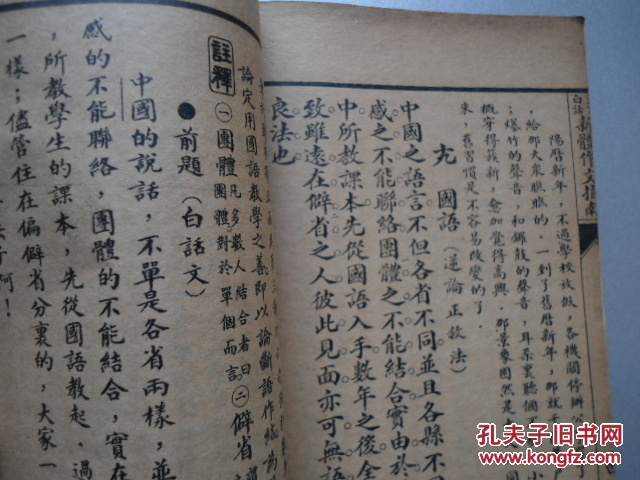 白話
新體作文指南
陽曆新年，不過學校放假，各機關停辦公
給那大衆瞧瞧的．一到了舊曆新年，那就
；爆竹的聲音，和鑼鼓的聲音，耳朵裏聽個不
概穿得簇新，愈加覺得高興．那景象固然是
來．舊習慣是不容易改變的了．
國語（逆論正敘法）
中國之語言不但各省不同並且各縣不同
感之不能聯絡團體之不能結合實由於
中所教課本先從國語入手數年之後全
致雖遠在僻省之人彼此見面亦可無語
良法也
論定用國語教學之善即以論斷語作結
註釋
㊀團體 凡多數人結合者曰團體對於單個而言。㊁僻省
●前題（白話文）
中國的說話，不單是各省兩樣，並
感的不能聯絡，團體的不能結合，實在
，所教學生的課本，先從國語教起．過
一樣；儘管住在偏僻省分裏的，大家一
啊！
孔夫子旧书网
www.kongfz.com